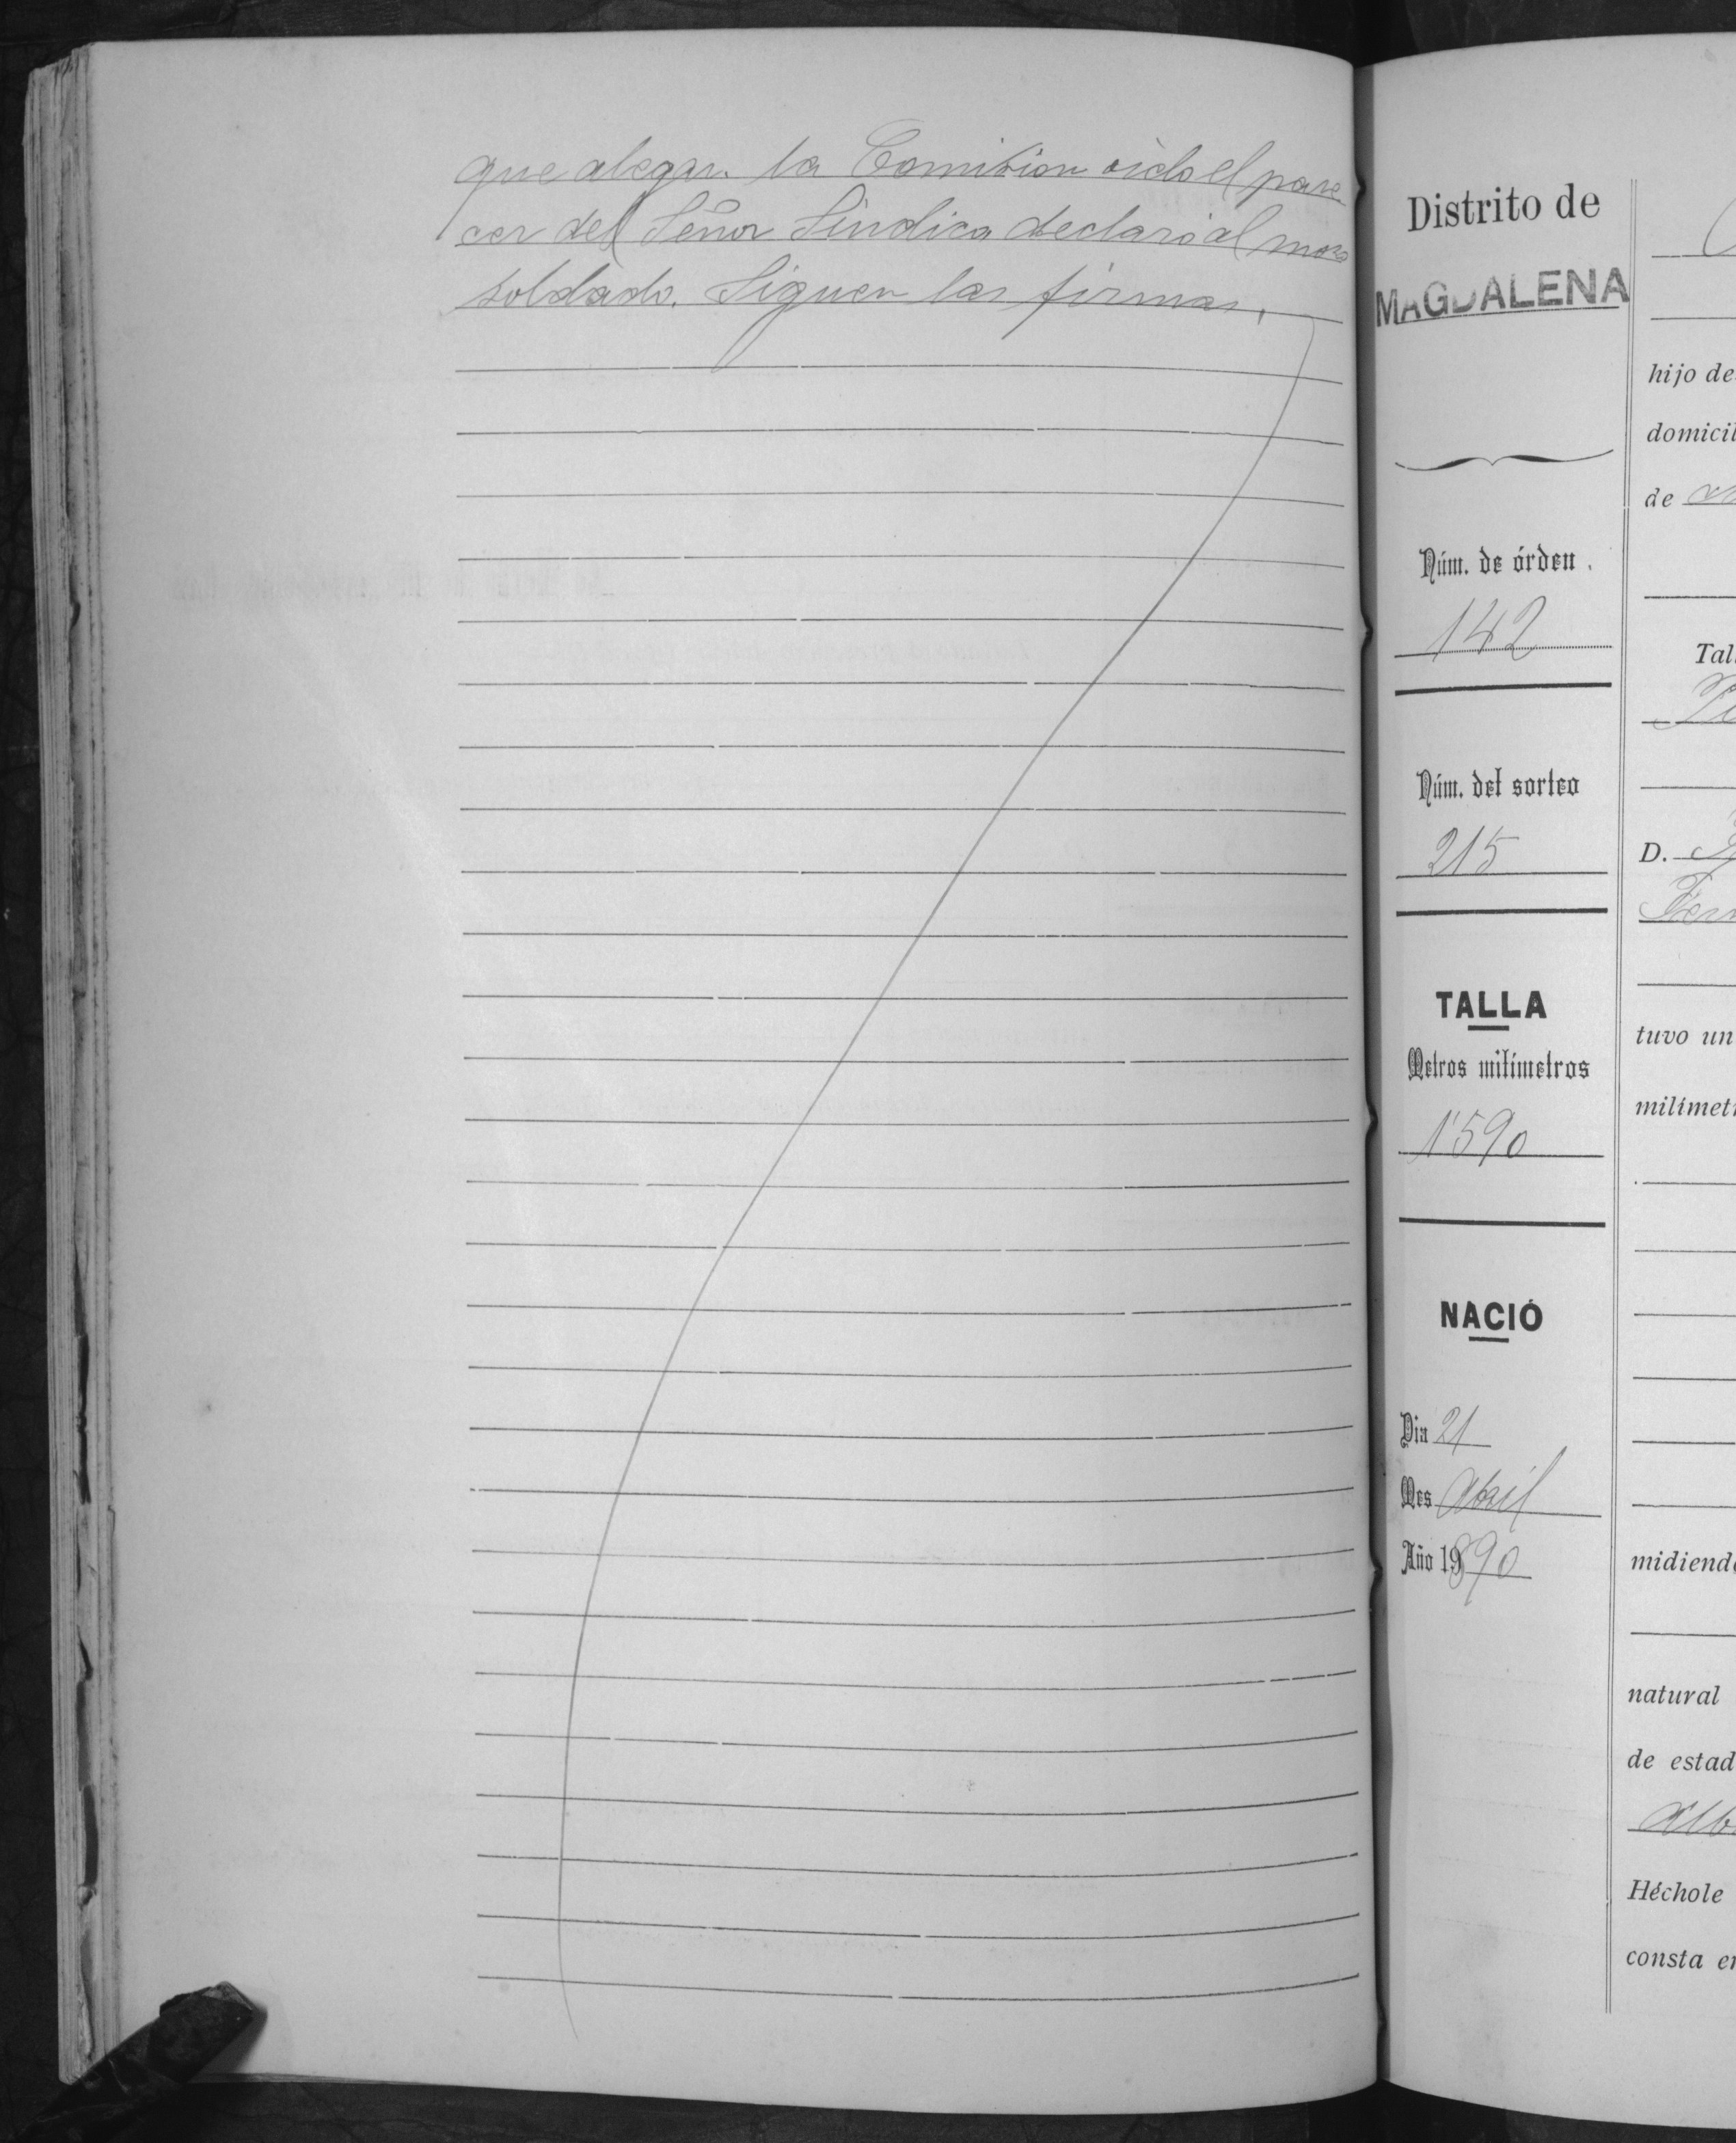 que alegar. La Comision oido el pare
cer del Señor Sindico declaró al mozo
soldado. Siguen las firmas.
Distrito de
MAGDALENA
Núm. de órden.
142
Núm. del sorteo
215
TALLA
Metros milímetros
1'590
NACIÓ
Dia 21
Mes Abril
Año 1890
hijo de
domicil
de
Tal
D.
Fer
tuvo un
milímet
midiend
natural
de estad
Alb
Héchole
consta e